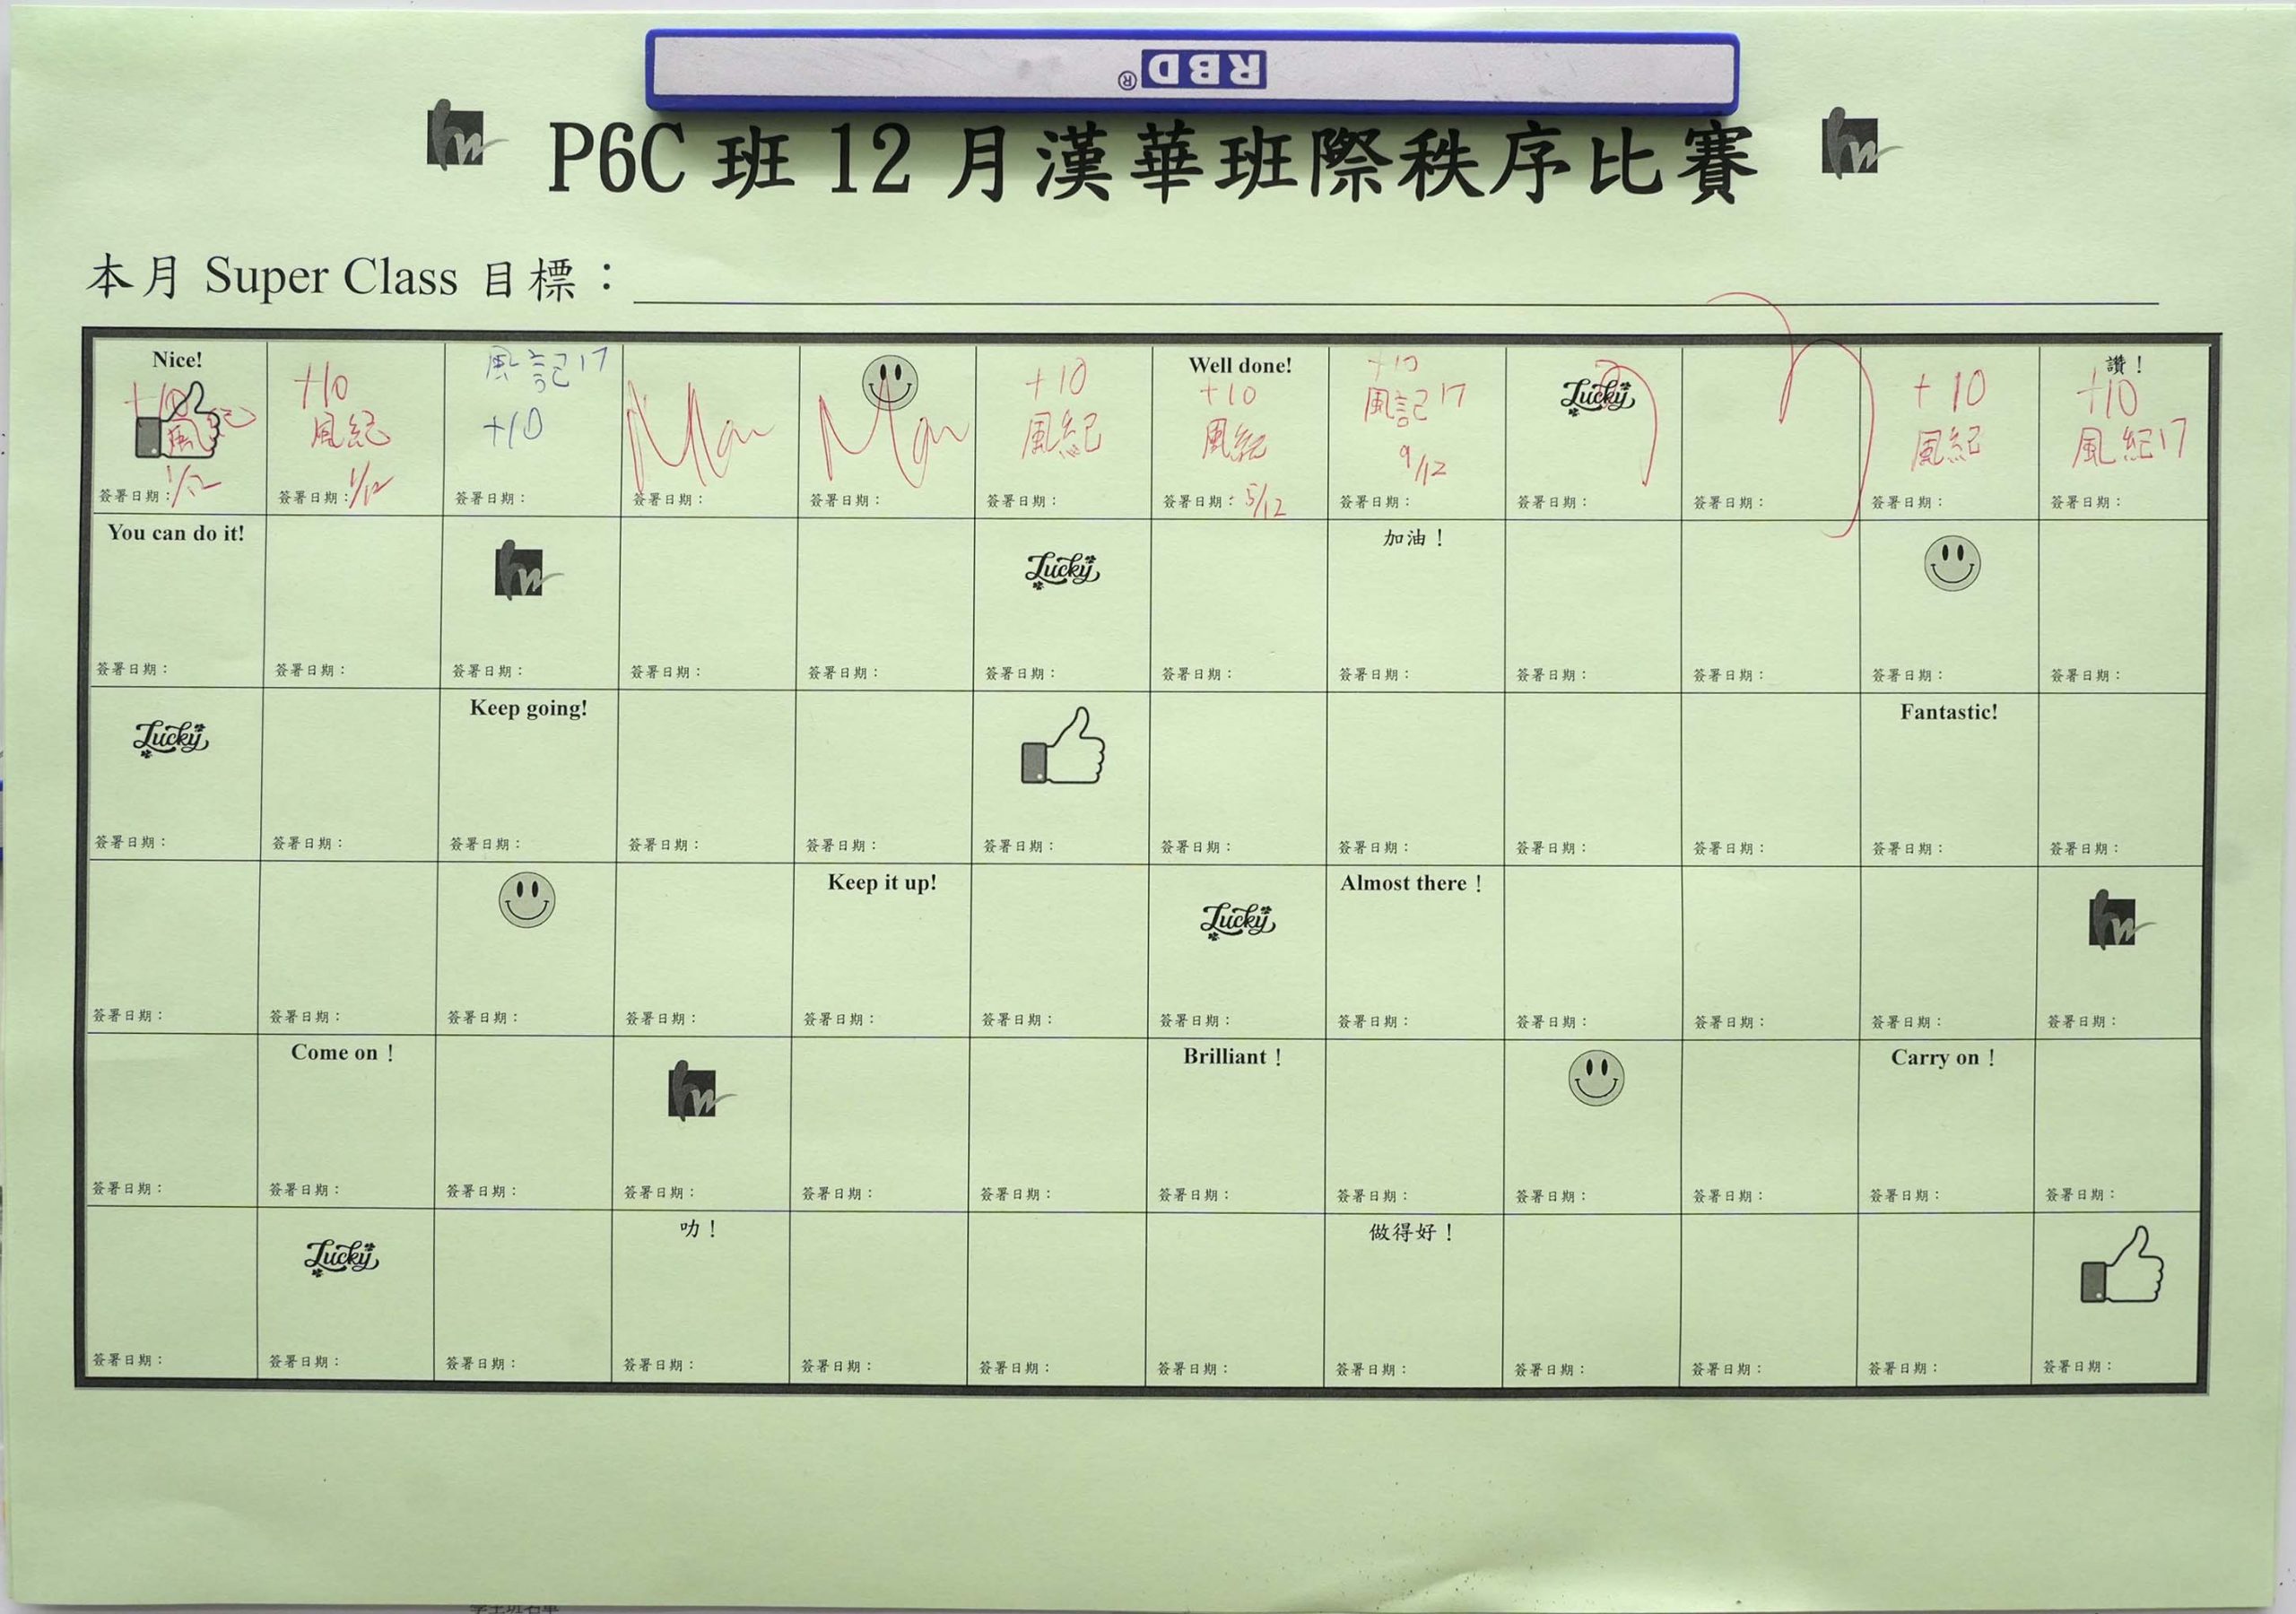 RBD®
P6C 班 12 月漢華班際秩序比賽
本月 Super Class 目標：
Nice!
+10
風紀
1/12
簽署日期：
+10
風紀
簽署日期：1/12
風記17
+10
簽署日期：
Man
簽署日期：
Man
簽署日期：
+10
風紀
簽署日期：
Well done!
+10
風紀
簽署日期：5/12
+10
風記17
9/12
簽署日期：
Lucky
簽署日期：
簽署日期：
+10
風紀
簽署日期：
讚！
+10
風紀17
簽署日期：
You can do it!
簽署日期：
簽署日期：
hw
簽署日期：
簽署日期：
簽署日期：
Lucky
簽署日期：
簽署日期：
加油！
簽署日期：
簽署日期：
簽署日期：
簽署日期：
簽署日期：
Lucky
簽署日期：
簽署日期：
Keep going!
簽署日期：
簽署日期：
簽署日期：
簽署日期：
簽署日期：
簽署日期：
簽署日期：
簽署日期：
Fantastic!
簽署日期：
簽署日期：
簽署日期：
簽署日期：
簽署日期：
簽署日期：
Keep it up!
簽署日期：
簽署日期：
Lucky
簽署日期：
Almost there！
簽署日期：
簽署日期：
簽署日期：
簽署日期：
hw
簽署日期：
簽署日期：
Come on！
簽署日期：
簽署日期：
hw
簽署日期：
簽署日期：
簽署日期：
Brilliant！
簽署日期：
簽署日期：
簽署日期：
簽署日期：
Carry on！
簽署日期：
簽署日期：
簽署日期：
Lucky
簽署日期：
簽署日期：
叻！
簽署日期：
簽署日期：
簽署日期：
簽署日期：
做得好！
簽署日期：
簽署日期：
簽署日期：
簽署日期：
簽署日期：